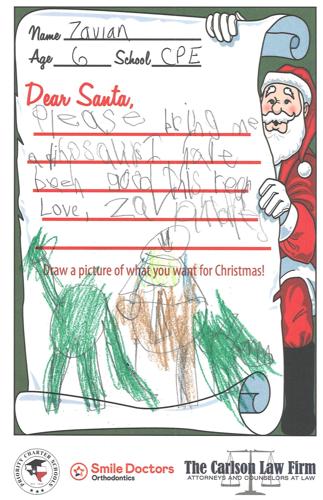 Name Zavian
Age 6 School CPE
Dear Santa,
Please bring me
a dinosaur I have
been good this
Love, Zav
Draw a picture of what you want for Christmas!
PRIORITY CHARTER SCHOOLS
Smile Doctors
Orthodontics
The Carlson Law Firm
ATTORNEYS AND COUNSELORS AT LAW